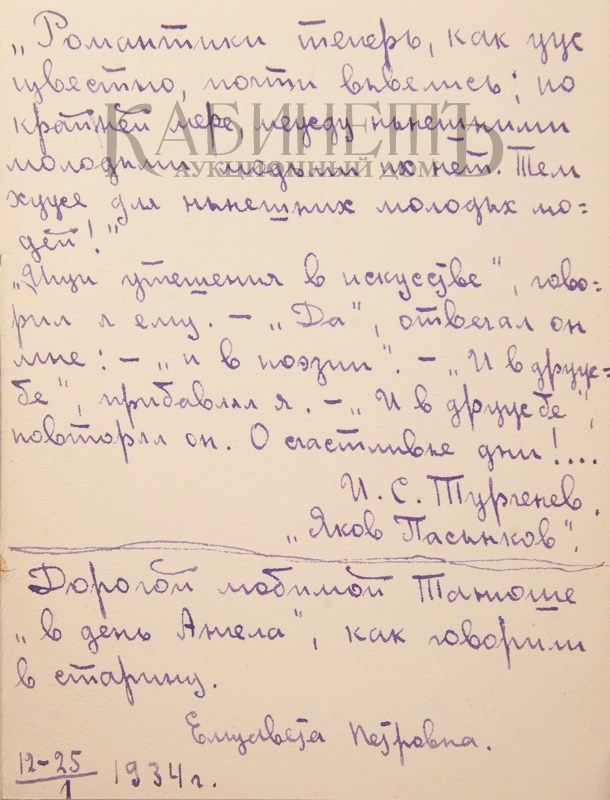 „Романтики теперь, как уже
известно, почти вывелись; по
крайней мере, между нынешними
молодыми людьми их нет. Тем
хуже для нынешних молодых лю=
дей!"
„Ищи утешения в искусстве", гово=
рил я ему. – „Да", отвечал он
мне: – „и в поэзии". – „И в друж=
бе", прибавлял я. – „И в дружбе",
повторял он. О счастливые дни!....
И. С. Тургенев.
„Яков Пасынков".
Дорогой любимой Танюше
„в день Ангела", как говорили
в старину.
Елизавета Петровна.
12–25/1 1934 г.
КАБИНЕТЪ
АУКЦИОННЫЙ ДОМ